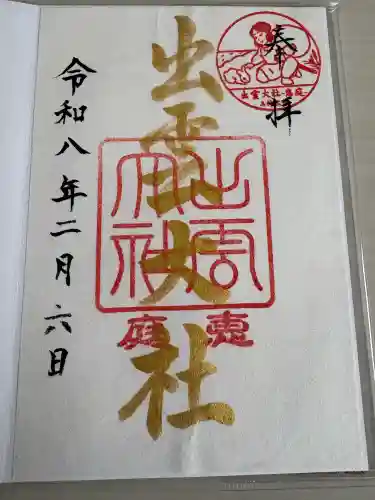 奉拝
出雲大社・恵庭
出雲大社
出雲
大社
恵庭
令和八年二月六日